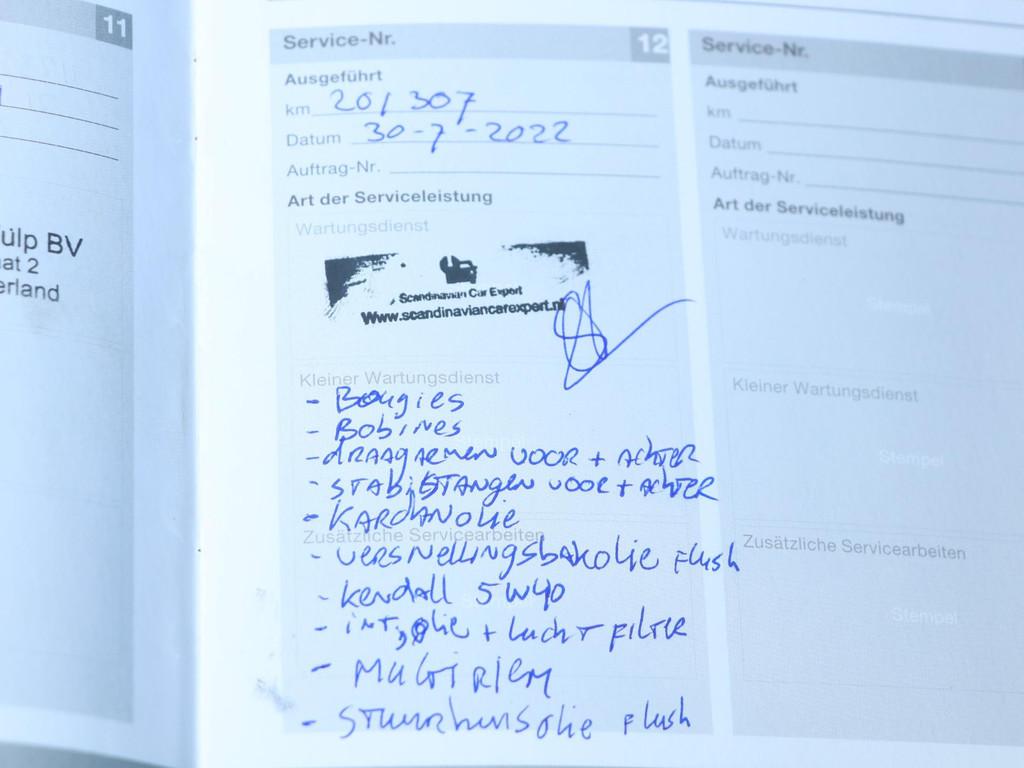 11
ülp BV
at 2
erland
Service-Nr. 12
Ausgeführt
km 201307
Datum 30-7-2022
Auftrag-Nr.
Art der Serviceleistung
Wartungsdienst
Scandinavian Car Expert
Www.scandinaviancarexpert.nl
Kleiner Wartungsdienst
- Bougies
- Bobines
Stempel
- draagarmen voor + achter
- stabistangen voor + achter
- kardanolie
Zusätzliche Servicearbeiten
- versnellingsbakolie flush
- kendall 5w40
Stempel
- int, olie + lucht filter
- multiriem
- stuurhuisolie flush
Service-Nr.
Ausgeführt
km
Datum
Auftrag-Nr.
Art der Serviceleistung
Wartungsdienst
Stempel
Kleiner Wartungsdienst
Stempel
Zusätzliche Servicearbeiten
Stempel